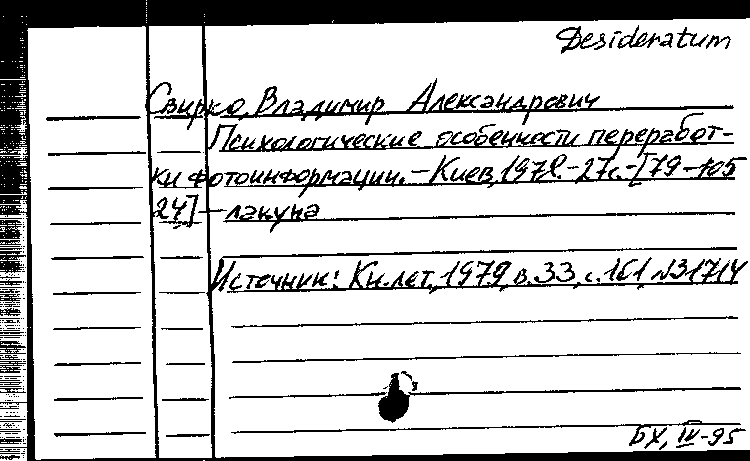 Desideratum
Свирко, Владимир Александрович
Психологические особенности переработ-
ки фотоинформации. – Киев, 1978. – 27с. – [79–105
24] – лакуна
Источник: Кн. лет., 1979, в. 33, с. 161, №31714
БХ, IV-95